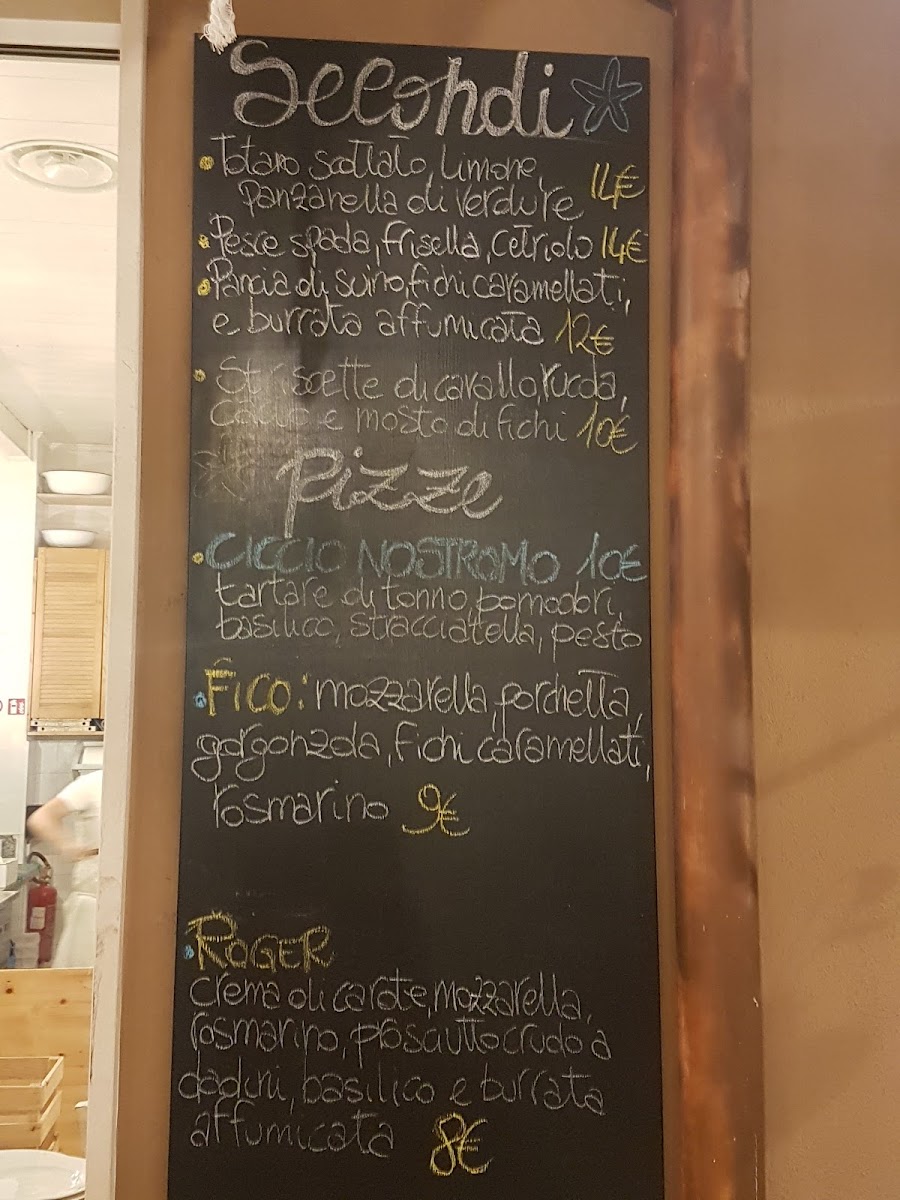 Secondi
Totano scottato, limone, 14€
panzanella di verdure
Pesce spada, frisella, cetriolo 14€
Pancia di suino, fichi caramellati,
e burrata affumicata 12€
Striscette di cavallo, rucola,
cacio e mosto di fichi 10€
Pizze
CICCIO NOSTROMO 10€
tartare di tonno, pomodori,
basilico, stracciatella, pesto
FICO: mozzarella, porchetta,
gorgonzola, fichi caramellati,
rosmarino 9€
ROGER
crema di carote, mozzarella,
rosmarino, prosciutto crudo a
dadini, basilico e burrata
affumicata 8€